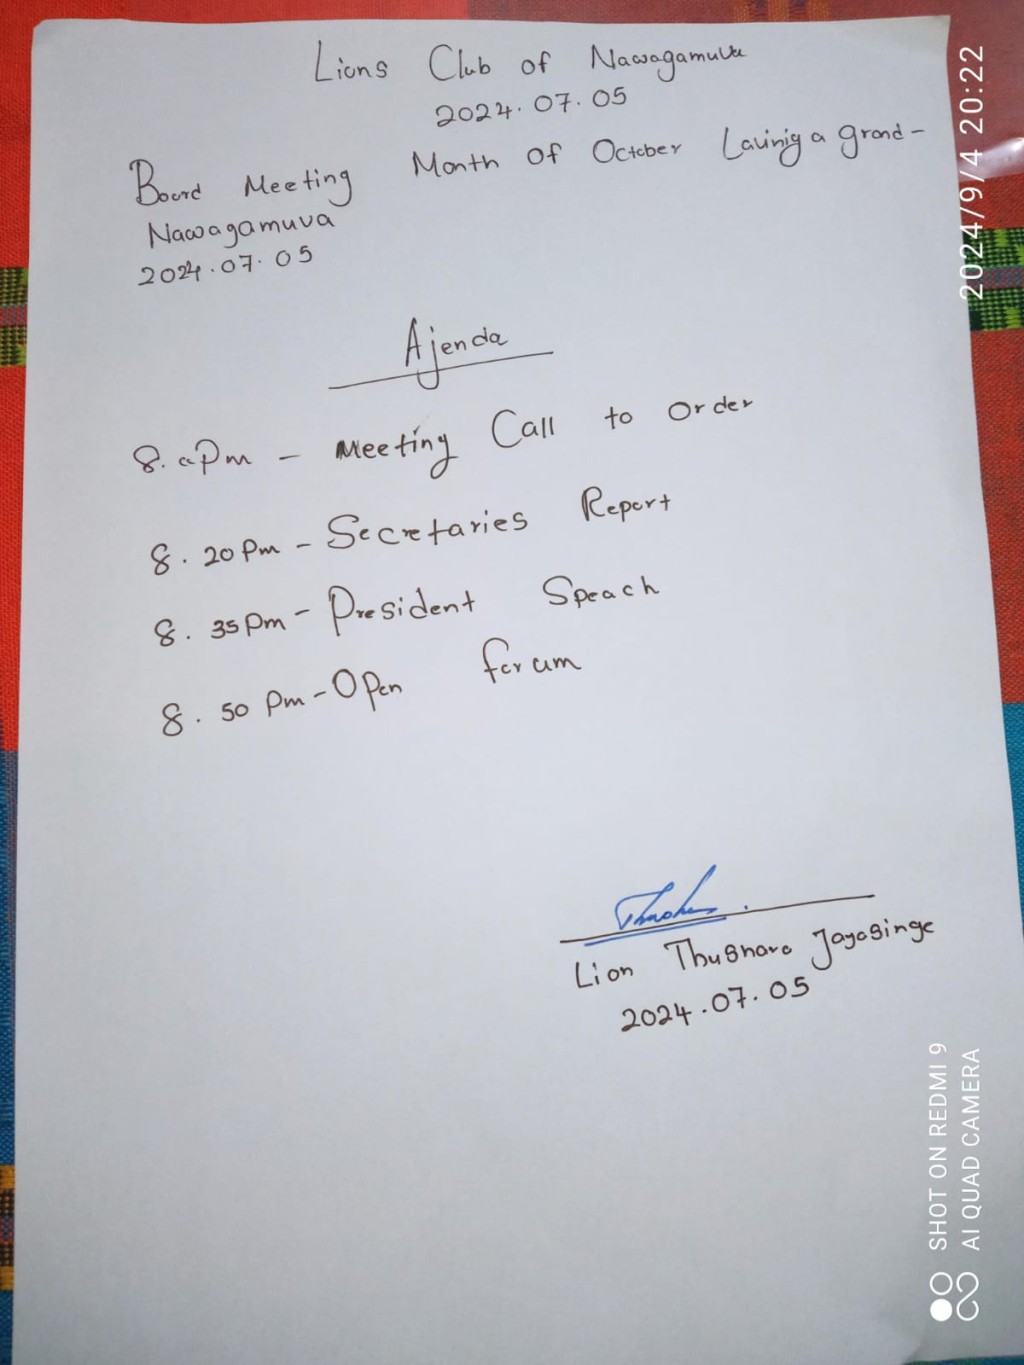 Lions Club of Nawagamuva
2024.07.05
Board Meeting Month Of October Lavinig a grand-
Nawagamuva
2024.07.05
Ajenda
8. Pm - Meeting Call to Order
8. 20 Pm - Secretaries Report
8. 35 Pm - President Speach
8. 50 Pm - Open forum
Lion Thushara Jayasinge
2024.07.05
2024/9/4 20:22
SHOT ON REDMI 9
AI QUAD CAMERA